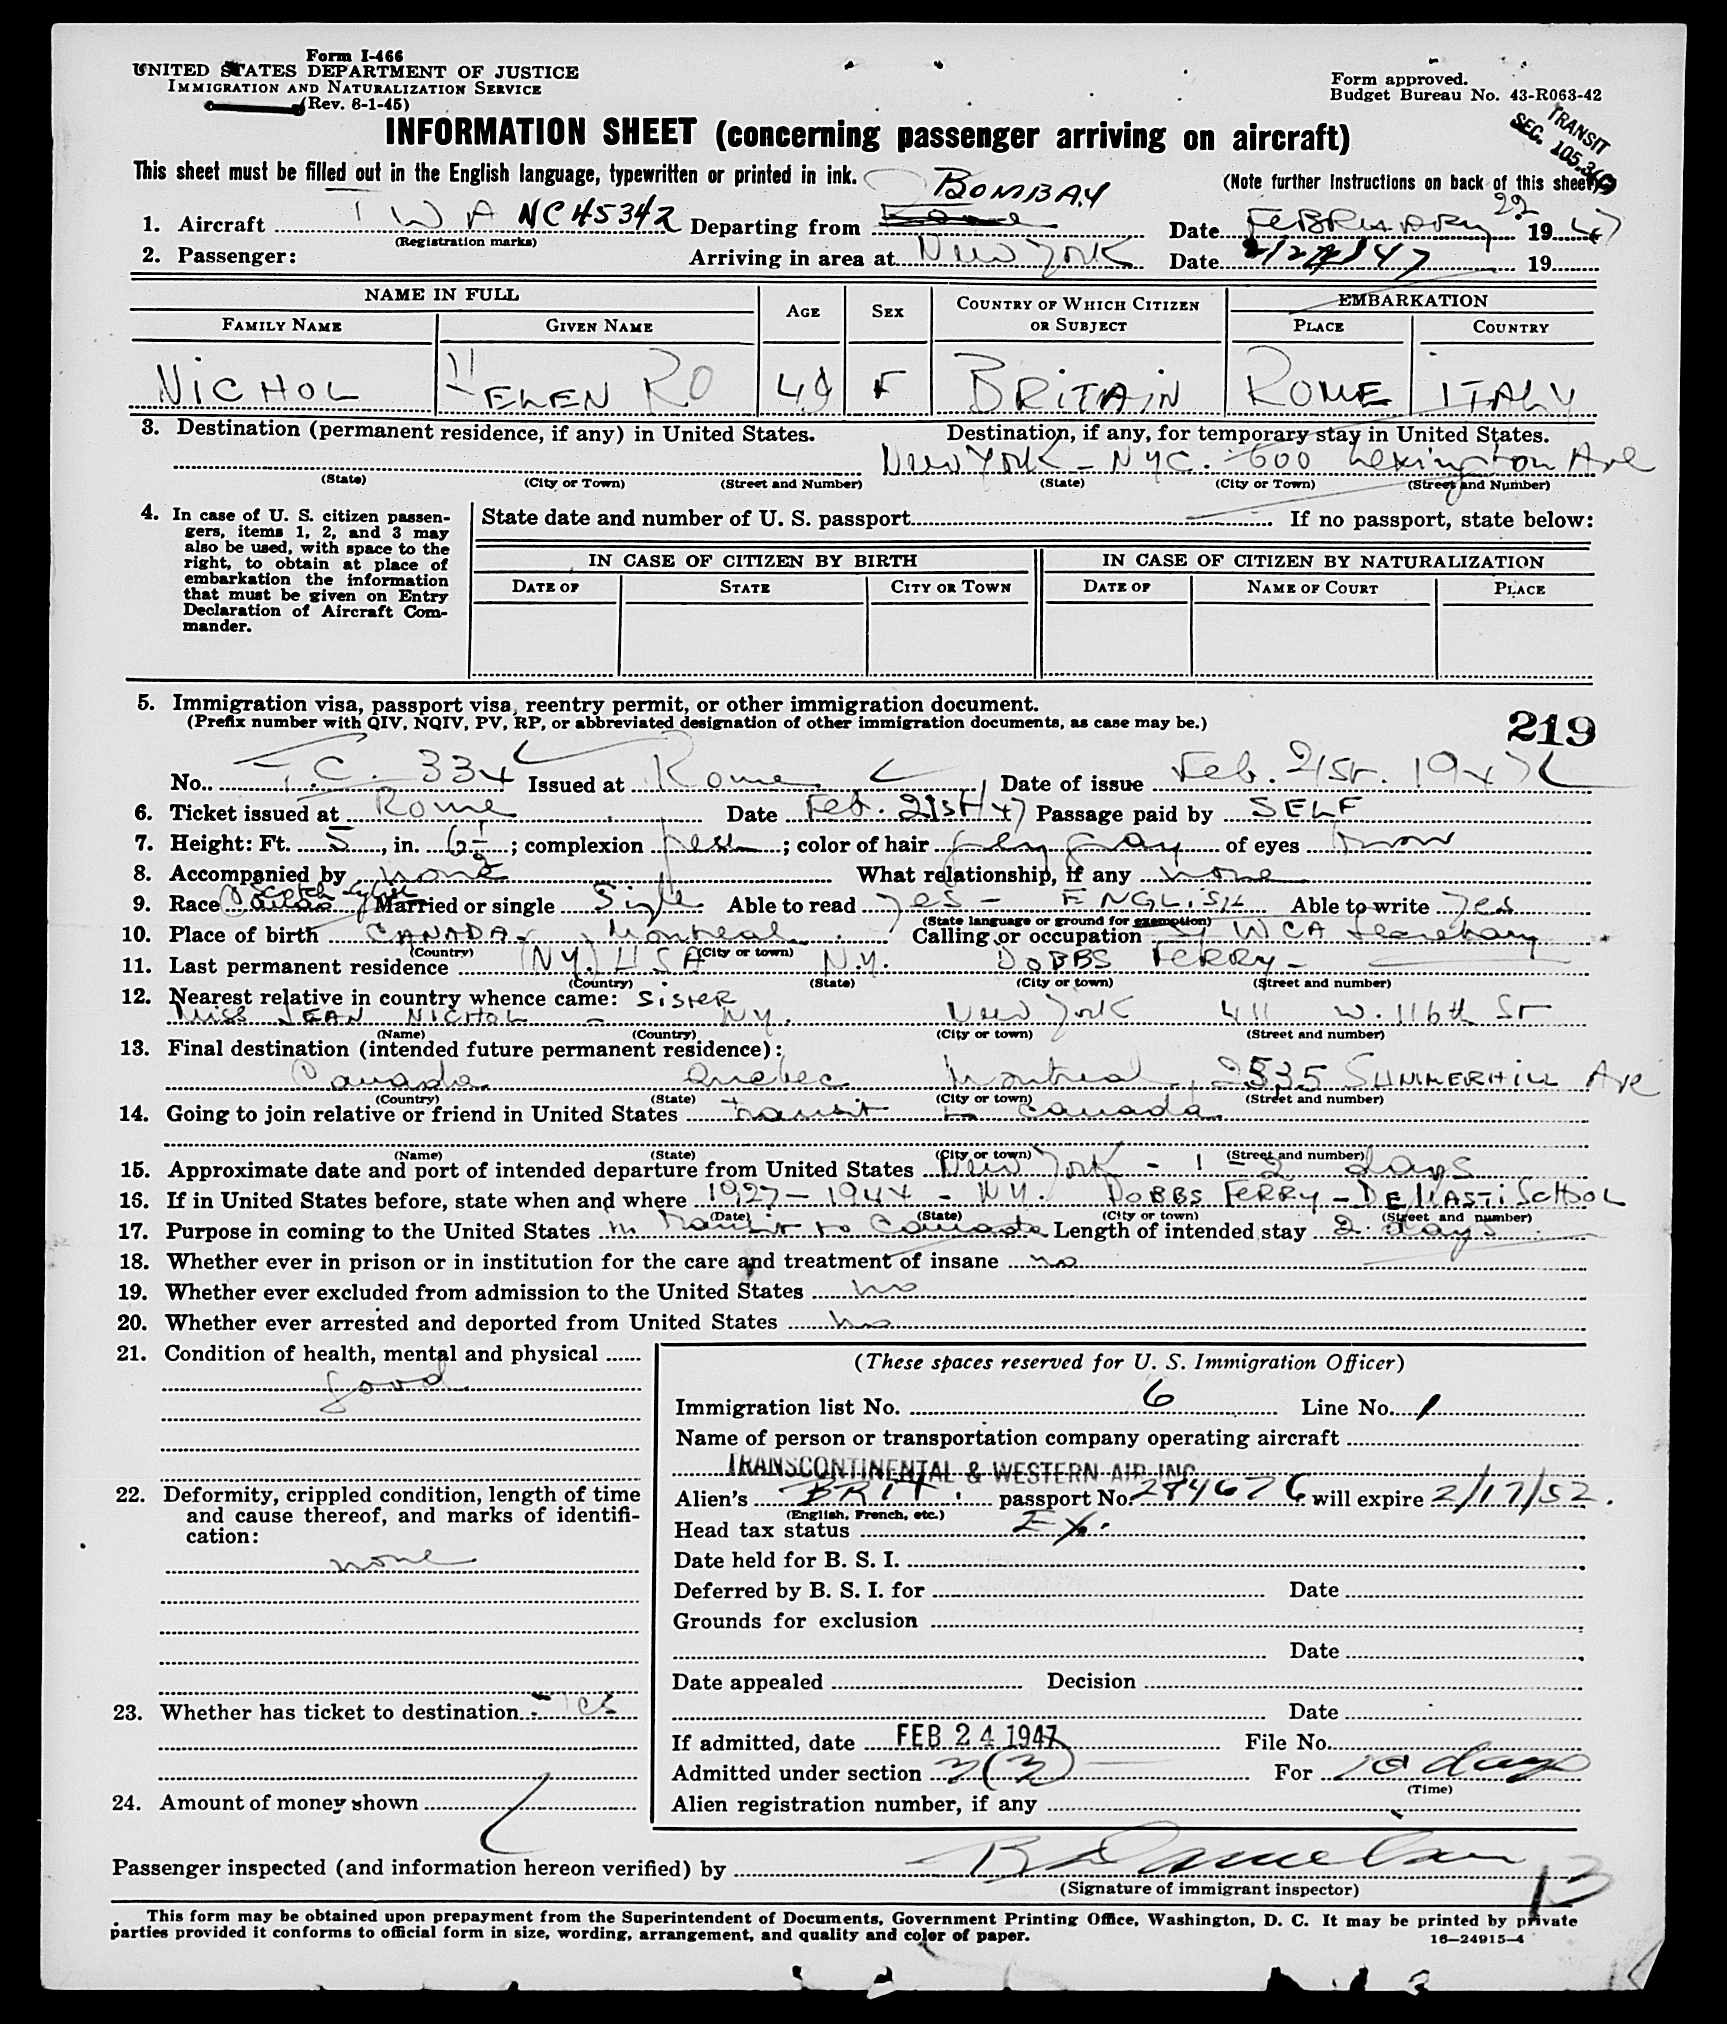 Form I-466
UNITED STATES DEPARTMENT OF JUSTICE
IMMIGRATION AND NATURALIZATION SERVICE
(Rev. 8-1-45)
Form approved.
Budget Bureau No. 43-R063-42
TRANSIT
SEC. 105.3
INFORMATION SHEET (concerning passenger arriving on aircraft)
This sheet must be filled out in the English language, typewritten or printed in ink.
(Note further instructions on back of this sheet)
1. Aircraft TWA NC45342 Departing from BOMBAY Date FEBRUARY 22 1947
(Registration marks)
2. Passenger: Arriving in area at New York Date 19
NAME IN FULL AGE SEX COUNTRY OF WHICH CITIZEN OR SUBJECT EMBARKATION
FAMILY NAME GIVEN NAME PLACE COUNTRY
NICHOL HELEN RO 49 F BRITAIN ROME ITALY
3. Destination (permanent residence, if any) in United States. Destination, if any, for temporary stay in United States.
New York - NYC. 600 Lexington Ave
(State) (City or Town) (Street and Number) (State) (City or Town) (Street and Number)
4. In case of U. S. citizen passengers, items 1, 2, and 3 may also be used, with space to the right, to obtain at place of embarkation the information that must be given on Entry Declaration of Aircraft Commander.
State date and number of U. S. passport If no passport, state below:
IN CASE OF CITIZEN BY BIRTH IN CASE OF CITIZEN BY NATURALIZATION
DATE OF STATE CITY OR TOWN DATE OF NAME OF COURT PLACE
5. Immigration visa, passport visa, reentry permit, or other immigration document.
(Prefix number with QIV, NQIV, PV, RP, or abbreviated designation of other immigration documents, as case may be.)
219
No. T.C. 334 Issued at Rome Date of issue Feb. 21st. 1947
6. Ticket issued at Rome Date Feb. 21st 47 Passage paid by SELF
7. Height: Ft. 5, in. 6½; complexion fresh; color of hair gray of eyes brown
8. Accompanied by none What relationship, if any none
9. Race Scotch Married or single Single Able to read Yes - ENGLISH Able to write Yes
(State language or ground for exemption)
10. Place of birth CANADA - Montreal Calling or occupation YWCA Secretary
(Country) (City or town)
11. Last permanent residence (NY) USA N.Y. DOBBS FERRY -
(Country) (State) (City or town) (Street and number)
12. Nearest relative in country whence came: SISTER
MISS JEAN NICHOL - NY. New York 411 W. 116th St
(Name) (Country) (City or town) (Street and number)
13. Final destination (intended future permanent residence):
Canada Quebec Montreal, 2535 SUMMERHILL Ave
(Country) (State) (City or town) (Street and number)
14. Going to join relative or friend in United States transit to Canada
(Name) (State) (City or town) (Street and number)
15. Approximate date and port of intended departure from United States New York - 1 - 2 days
16. If in United States before, state when and where 1927 - 1944 - NY. DOBBS FERRY - SCHOOL
(Date) (State) (City or town) (Street and number)
17. Purpose in coming to the United States in transit to Canada Length of intended stay 2 days
18. Whether ever in prison or in institution for the care and treatment of insane no
19. Whether ever excluded from admission to the United States no
20. Whether ever arrested and deported from United States no
21. Condition of health, mental and physical
good
22. Deformity, crippled condition, length of time and cause thereof, and marks of identification:
none
23. Whether has ticket to destination yes
24. Amount of money shown
(These spaces reserved for U. S. Immigration Officer)
Immigration list No. 6 Line No. 1
Name of person or transportation company operating aircraft
TRANSCONTINENTAL & WESTERN AIR INC
Alien's BRIT. passport No. 284676 will expire 2/17/52.
(English, French, etc.)
Head tax status Ex.
Date held for B. S. I.
Deferred by B. S. I. for Date
Grounds for exclusion
Date
Date appealed Decision
Date
If admitted, date FEB 24 1947 File No.
Admitted under section 3(3) For 10 days
(Time)
Alien registration number, if any
Passenger inspected (and information hereon verified) by
(Signature of immigrant inspector)
13
This form may be obtained upon prepayment from the Superintendent of Documents, Government Printing Office, Washington, D. C. It may be printed by private
parties provided it conforms to official form in size, wording, arrangement, and quality and color of paper.
16—24915-4